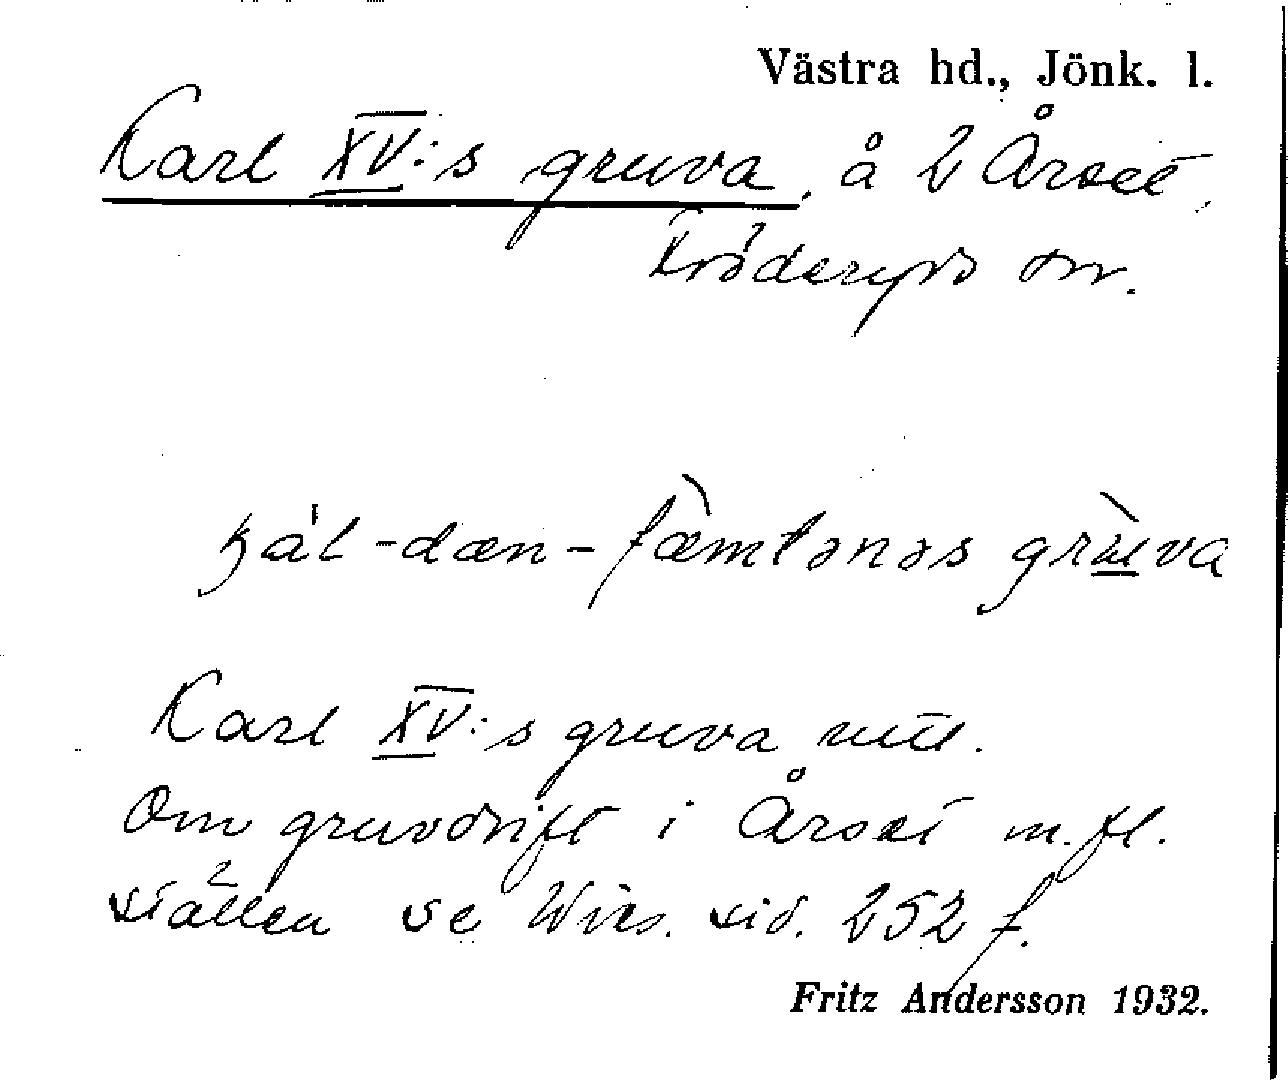 Västra hd., Jönk. l.
Karl XV:s gruva, å 2 Årset,
Bröderyds sn.
kál-dæn-fæ̀mtənəs grùva
Karl XV:s gruva
Om gruvdrift i Årset m.fl.
ställen se Wies. sid. 252 f.
Fritz Andersson 1932.